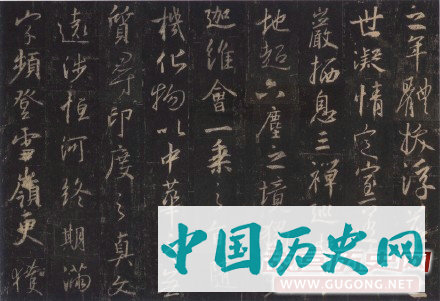 之年體拔浮
世凝情定室
巖栖息三禪
地超六塵之境
迦維會一乘之
機化物以中華
質尋印度之真文
遠涉恒河終期滿
字頻登雪嶺更獲
中国历史网
WWW.GUGONG.NET